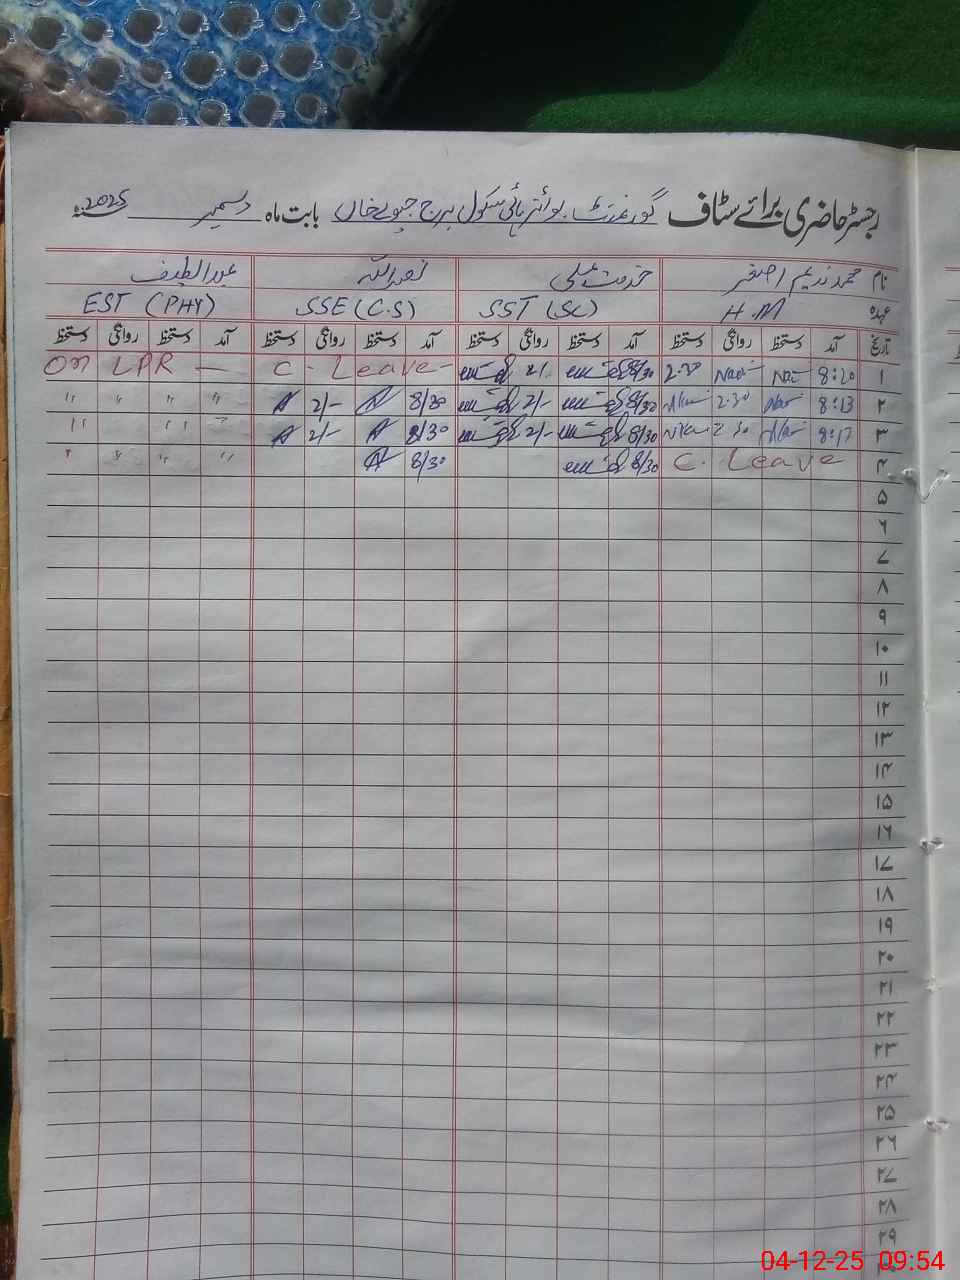 رجسٹر حاضری برائے سٹاف گورنمنٹ بوائز ہائی سکول برج جیوے خاں بابت ماہ دسمبر 2025ء
نام محمد ندیم اصغر خدمت علی نصراللہ عبدالطیف
عہدہ H.M SST (SC) SSE (C.S) EST (PHY)
تاریخ آمد دستخط روانگی دستخط آمد دستخط روانگی دستخط آمد دستخط روانگی دستخط آمد دستخط روانگی دستخط
۱ 8:20 2.30 8/30 2/- C. Leave - On LPR -
۲ 8:13 2.30 8/30 2/- 8/30 2/- " " " "
۳ 8:17 2 30 8/30 2/- 8/30 2/- " " "
۴ C. Leave 8/30 8/30 " " " "
۵
۶
۷
۸
۹
۱۰
۱۱
۱۲
۱۳
۱۴
۱۵
۱۶
۱۷
۱۸
۱۹
۲۰
۲۱
۲۲
۲۳
۲۴
۲۵
۲۶
۲۷
۲۸
۲۹
04-12-25 09:54